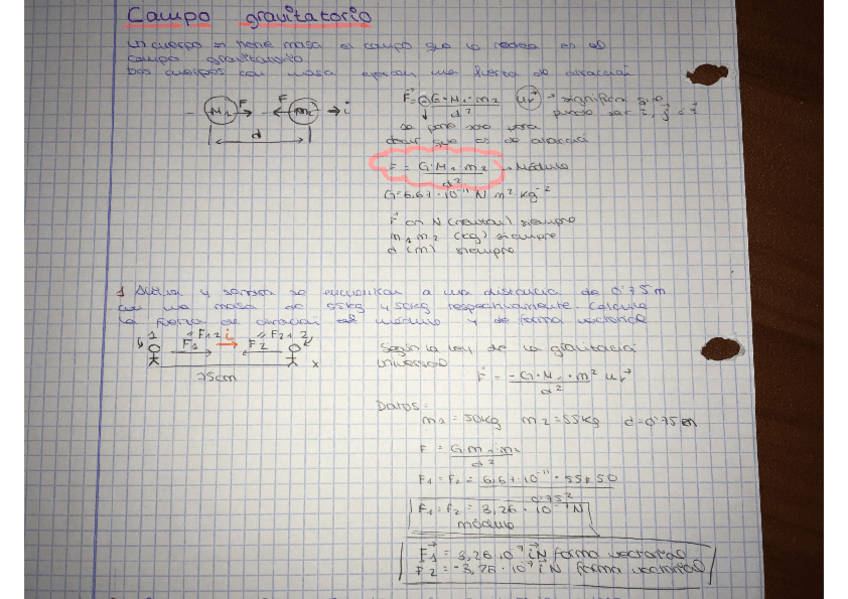 Campo gravitatorio
un cuerpo si tiene masa el campo que lo rodea es el
campo gravitatorio
Dos cuerpos con masa ejercen una fuerza de atracción
M1 F F m2 i
d
F = - G·M1·m2 / d² ur → significa que
puede ser i, j o
se pone
decir que es de atracción
F = G·M1·m2 / d² → Módulo
G = 6,67·10⁻¹¹ N m² kg⁻²
F en N (newton) siempre
m1 m2 (kg) siempre
d (m) siempre
1 y se encuentran a una distancia de 0'75m
con una masa de 55kg y 50kg respectivamente. Calcula
la fuerza de atracción en módulo y de forma vectorial
1 F1 2 i F2 1 2
F1 F2
x
75cm
Según la ley de la gravitación
universal
F = -G·M1·m2 / d² ur
Datos:
m1 = 50kg m2 = 55kg d = 0'75m
F = G·m1·m2 / d²
F1 = F2 = 6,67·10⁻¹¹·55·50 / 0'75²
F1 = F2 = 3,26·10⁻⁷ N
módulo
F1 = 3,26·10⁻⁷ i N forma vectorial
F2 = -3,26·10⁻⁷ i N forma vectorial